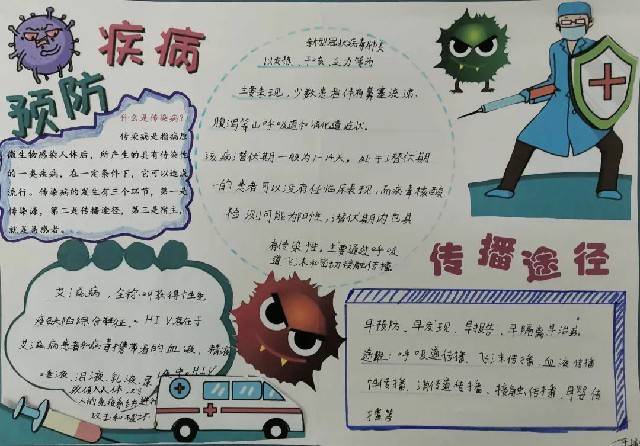 疾病
预防
什么是传染病?
传染病是指病原
微生物感染人体后，所产生的具有传染性
的一类疾病。在一定条件下，它可以造成
流行。传染病的发生有三个环节，第一是
传染源，第二是传播途径，第三是宿主，
就是易感者。
新型冠状病毒肺炎
以发热、干咳、乏力等为
主要表现，少数患者伴有鼻塞流涕、
腹泻等上呼吸道和消化道症状.
该病潜伏期一般为1-14天。处于潜伏期
的患者可以没有任临床表现，而病毒核酸
检测可能为阳性，潜伏期内也具
有传染性。主要通过呼吸
道飞沫和密切接触传播
艾滋病，全称叫获得性免
疫缺陷综合征。HIV存在于
艾滋病患者和病毒携带者的血液、精液
唾液、泪液、乳液、尿液中。HIV
传播途径
早预防、早发现、早报告、早隔离早治疗
途径：呼吸道传播、飞沫传播、血液传播
性传播、消化道传播、接触传播、母婴传
播等